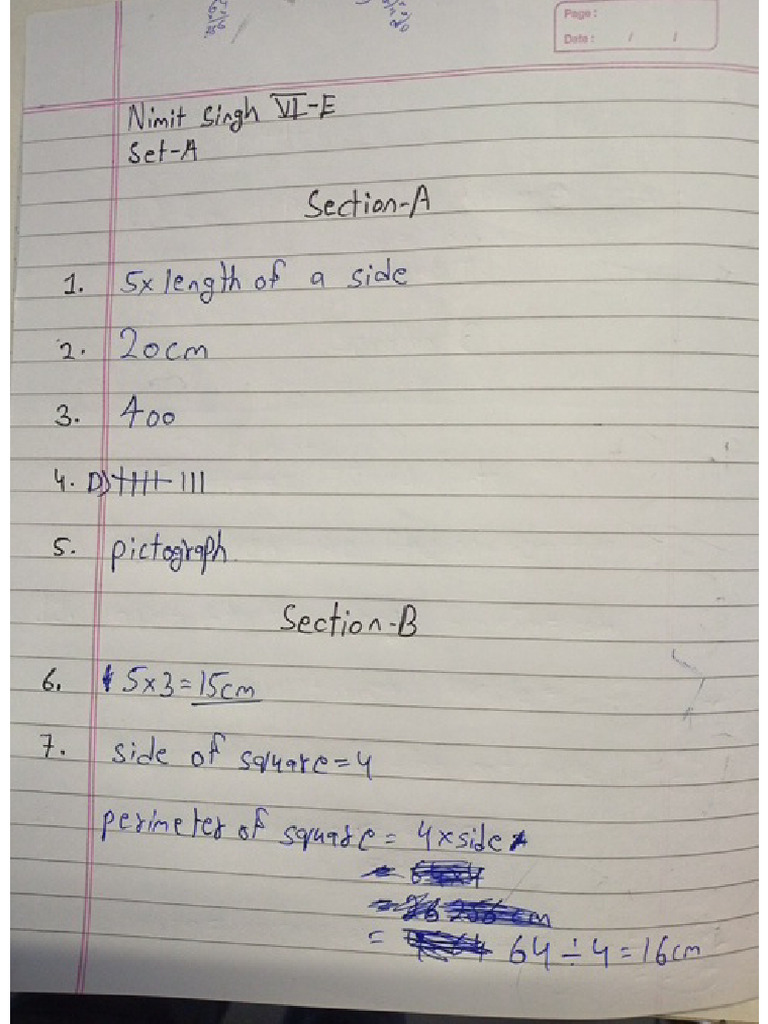 Page :
Date : / /
Nimit Singh VI-E
Set-A
Section-A
1. 5x length of a side
2. 20cm
3. 400
4. D) 𝍸 |||
5. pictograph
Section-B
6. 5×3=15cm
7. side of square=4
perimeter of square = 4×side
=
= cm
= 64÷4=16cm